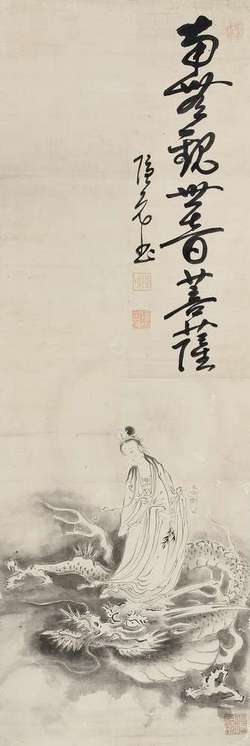 南無觀世音菩薩
隱元書